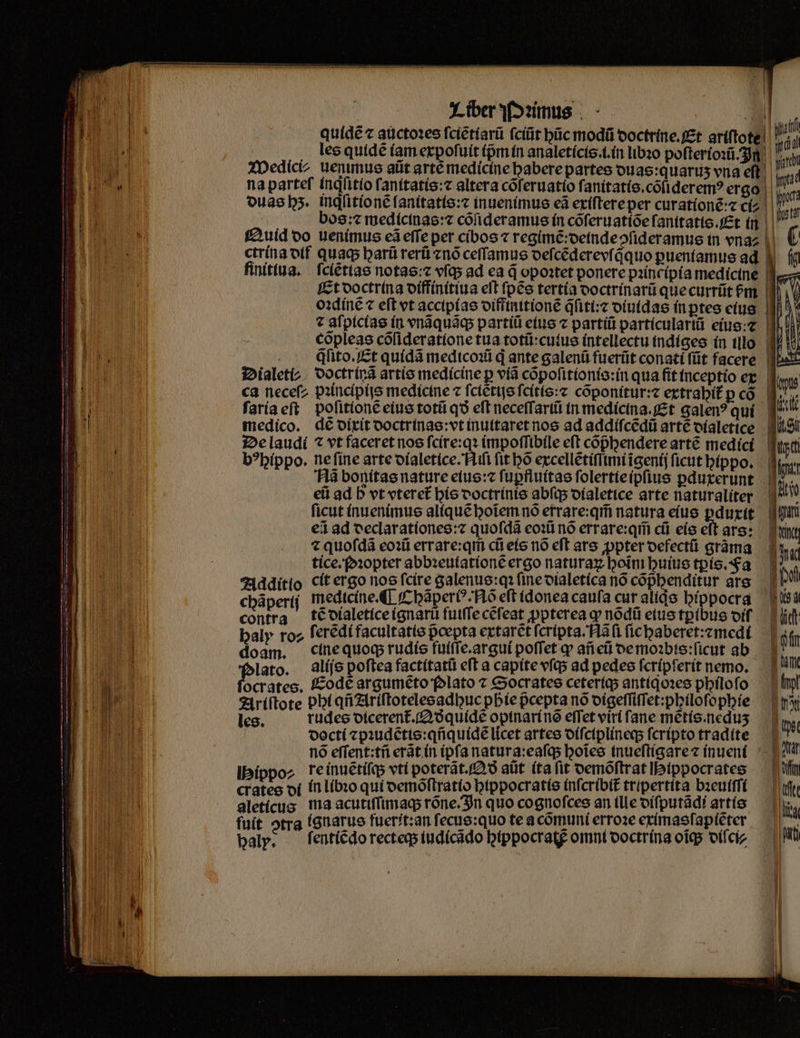 Liber Primus
quidē ⁊ auctores sciētiarū sciūt hūc modū doctrine. Et aristote
les quidē iam exposuit ip̄m in analeticis .i. in libro posteriorū. In
Medici⸗ uenimus aūt artē medicine habere partes duas: quarum vna est
na partes inq̇sitio sanitatis: ⁊ altera cōseruatio sanitatis. cōsideremꝰ ergo
duas hꝫ. inq̇sitionē sanitatis: ⁊ inuenimus eā existere per curationē: ⁊ ci⸗
bos: ⁊ medicinas: ⁊ cōsideramus in cōseruatiōe sanitatis. Et in
Quid do uenimus eā esse per cibos ⁊ regimē: deinde ꝯsideramus in vna⸗
ctrina dif quaqꝫ harū rerū ⁊ nō cessamus descēdere vsq̇quo ꝑueniamus ad
finitiua. sciētias notas: ⁊ vsqꝫ ad ea q̇ oportet ponere principia medicine
Et doctrina diffinitiua est sp̄es tertia doctrinarū que currūt ẜm
ordinē ⁊ est vt accipias diffinitionē q̇siti: ⁊ diuidas in ꝑtes eius
⁊ aspicias in vnāquāqꝫ partiū eius ⁊ partiū particulariū eius: ⁊
cōpleas cōsideratione tua totū: cuius intellectu indiges in illo
q̇sito. Et quidā medicorū q̇ ante galenū fuerūt conati sūt facere
Dialeti⸗ doctrinā artis medicine ꝑ viā cōpositionis: in qua fit inceptio ex
ca neces⸗ principijs medicine ⁊ sciētijs scitis: ⁊ cōponitur: ⁊ extrahit̄ ꝑ cō
saria est positionē eius totū qđ est necessariū in medicina. Et galenꝰ qui
medico. dē dixit doctrinas: vt inuitaret nos ad addiscēdū artē dialetice
De laudi ⁊ vt faceret nos scire: qꝛ impossibile est cōp̄hendere artē medici
bꝰ hippo. ne sine arte dialetice. Nisi sit hō excellētissimi īgenij sicut hippo.
Nā bonitas nature eius: ⁊ suꝑfluitas solertie ipsius ꝓduxerunt
eū ad ħ vt vteret̄ his doctrinis absqꝫ dialetice arte naturaliter
sicut inuenimus aliquē hoīem nō errare: qm̄ natura eius ꝓduxit
eā ad declarationes: ⁊ quosdā eorū nō errare: qm̄ cū eis est ars:
⁊ quosdā eorū errare: qm̄ cū eis nō est ars ꝓpter defectū grāma
tice. Propter abbreuiationē ergo naturaꝝ hoīm huius tp̄is. Fa
Additio cit ergo nos scire galenus: qꝛ sine dialetica nō cōp̄henditur ars
chāperij medicine. ¶ Chāperiꝰ. Nō est idonea causa cur aliq̇s hippocra
contra tē dialetice ignarū fuisse cēseat ꝓpterea ꝙ nōdū eius tp̄ibus dif
haly ro⸗ serēdi facultatis p̄cepta extarēt scripta. Nā si sic haberet: ⁊ medi
doam. cine quoqꝫ rudis fuisse. argui posset ꝙ añ eū de morbis: sicut ab
Plato. alijs postea factitatū est a capite vsqꝫ ad pedes scripserit nemo.
socrates. Eodē argumēto Plato ⁊ Socrates ceteriqꝫ antiq̇ores philoso
Aristote phi qn̄ Aristoteles adhuc ph̄ie p̄cepta nō digessisset: philosophie
les. rudes dicerent̄. Qđ quidē opinari nō esset viri sane mētis. neduꝫ
docti ⁊ prudētis: qn̄quidē licet artes disciplineqꝫ scripto tradite
nō essent: tn̄ erāt in ipsa natura: easqꝫ hoīes inuestigare ⁊ inueni
Hippo⸗ re inuētisqꝫ vti poterāt. Qđ aūt ita sit demōstrat Hippocrates
crates di in libro qui demōstratio hippocratis inscribit̄ tripertita breuissi
aleticus ma acutissimaqꝫ rōne. In quo cognosces an ille disputādi artis
fuit ꝯtra ignarus fuerit: an secus: quo te a cōmuni errore eximas sapiēter
haly. sentiēdo recteqꝫ iudicādo hippocratē omni doctrina oīqꝫ disci⸗